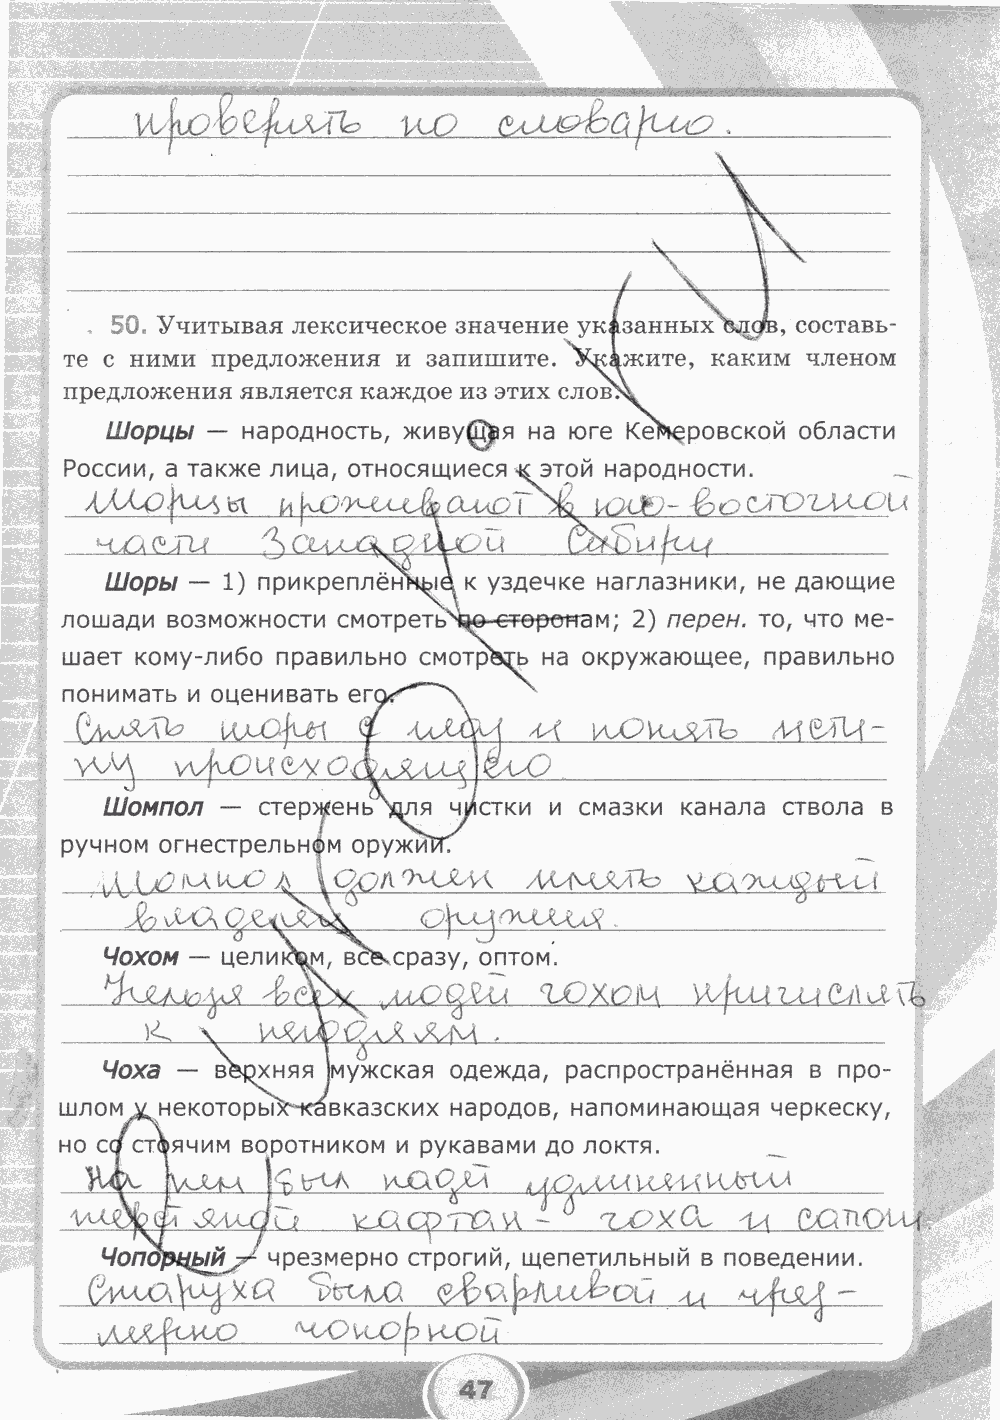 проверять по словарю.
50. Учитывая лексическое значение указанных слов, составь-
те с ними предложения и запишите. Укажите, каким членом
предложения является каждое из этих слов.
Шорцы — народность, живущая на юге Кемеровской области
России, а также лица, относящиеся к этой народности.
Шорцы проживают в юго-восточной
части Западной Сибири
Шоры — 1) прикреплённые к уздечке наглазники, не дающие
лошади возможности смотреть по сторонам; 2) перен. то, что ме-
шает кому-либо правильно смотреть на окружающее, правильно
понимать и оценивать его.
Снять шоры с глаз и понять исти-
ну происходящего
Шомпол — стержень для чистки и смазки канала ствола в
ручном огнестрельном оружии.
Шомпол должен иметь каждый
владелец оружия.
Чохом — целиком, все сразу, оптом.
Нельзя всех людей чохом причислять
к негодяям.
Чоха — верхняя мужская одежда, распространённая в про-
шлом у некоторых кавказских народов, напоминающая черкеску,
но со стоячим воротником и рукавами до локтя.
На нем был надет удлиненный
шерстяной кафтан - чоха и сапоги.
Чопорный — чрезмерно строгий, щепетильный в поведении.
Старуха была сварливой и чрез-
мерно чопорной
47